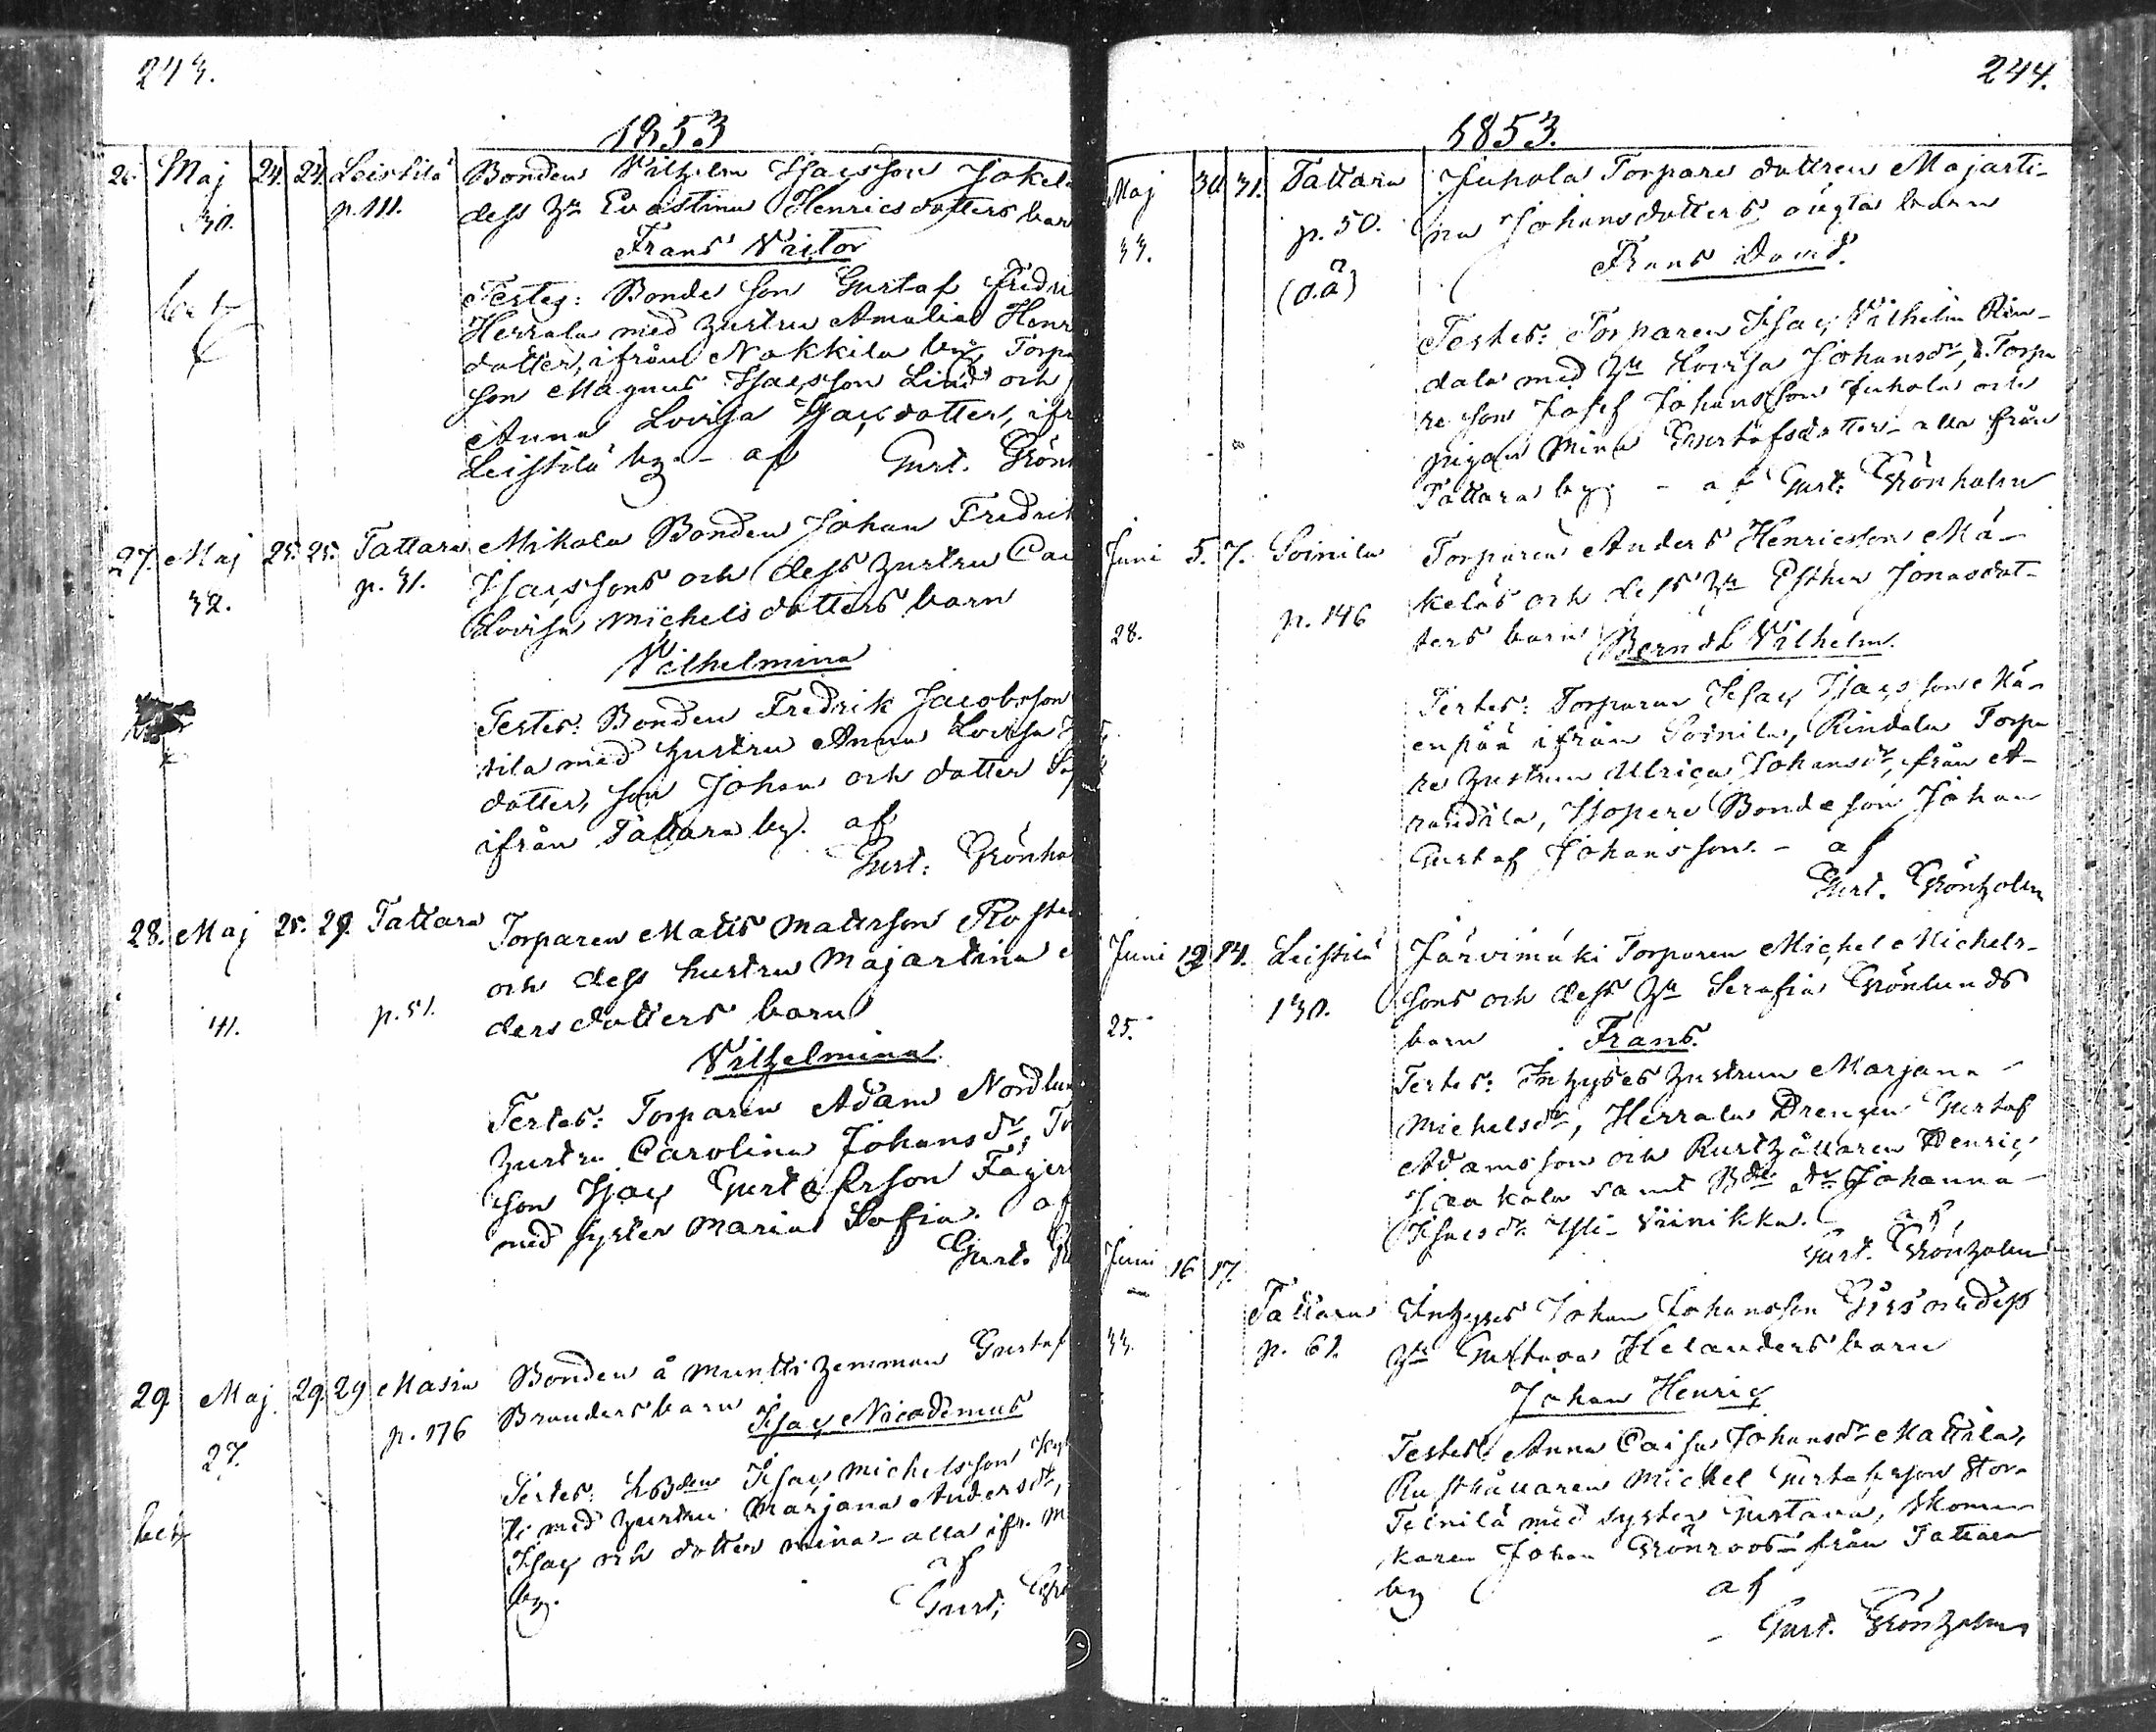 243.
1853
26. Maj 24. 24. Leistilä Bonden Vilhelm Isacsson Jokel
30. p. 111. dess Hu Eva Stina Henricsdotters bar
Frans Victor
Testes: Bonde Son Gustaf Fredri
Herrala med hustru Amalia Henr
dotter, ifrån Nakkila by, Torpa
son Magnus Isacsson Lind och
Anna Lovisa Isacsdotter, ifr
Leistilä by. - af Gust. Grön
27. Maj 25. 25. Tattara Mikola Bonden Johan Fredrik
32. p. 31. Isacssons och dess hustru Cai
Lovisa Michelsdotters barn
Vilhelmina
Testes: Bonden Fredrik Jacobsson
tila med hustru Anna Lovisa
dotter, son Johan och dotter
ifrån Tattara by. af
Gust. Grönho
28. Maj 25. 29. Tattara Torparen Matts Mattsson Ro
och dess hustru Maja Stina
41. p. 51. dersdotters barn
Vilhelmina
Testes: Torparen Adam Nordlun
hustru Carolina Johansdr, To
son Isac Gustafsson Fager
med syster Maria Sofia. af
Gust. Gr
29 Maj 29. 29 Masia Bonden å Muntti hemman Gustaf
27. p. 176 Branders barn Isac Nicodemus
Testes: Isac Michelsson
ti med hustru Marjana Andersdr,
Isac och dotter Mina - alla ifr. M
by. af
Gust. Grö
244.
1853.
Maj 30 31. Tattara Juhola Torpare dottren Maja Sti-
33. p. 50. na Johansdotters oägta barn
(o.ä) Frans David.
Testes: Torparen Isac Vilhelm Rin-
dala med Hu Lovisa Johansdr, Torpa
re son Josef Johansson Juhola och
pigan Mina Gustafsdotter - alla från
Tattara by. - af Gust. Grönholm
Juni 5. 7. Soinila Torparen Anders Henricsson Mä-
28. p. 146 keläs och dess Hu Esther Jonasdot-
ters barn Berndt Vilhelm.
Testes: Torparen Isac Isacsson Mä-
enpää ifrån Soinila, Rindala Torpa
re hustrun Ulrica Johansdr, från A-
rantila, Isopere Bonde son Johan
Gustaf Johansson. - af
Gust. Grönholm
Juni 12 14. Leistilä Järvimäki Torparen Michel Michels-
25. 130. sons och dess Hu Serafia Grönlunds
barn Frans.
Testes: Inhyses hustrun Marjana
Michelsdr, Herrala Drengen Gustaf
Adamsson och Rusthållaren Henric
Isacsdr Yli-Viinikka. af
Gust. Grönholm
Juni 16 17. Tattara Inhyses Johan Johansson och dess
33. p. 61. Hu Gustava Helanders barn
Johan Henric
Testes: Anna Caisa Johansdr Mattila,
Rusthållaren Michel Gustafsson Stor-
Teinilä med syster Gustava, Skoma-
karen Johan Grönroos - från Tattara
by af
Gust. Grönholm